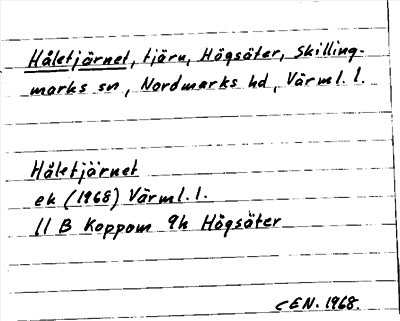 Håletjärnet, tjärn, Högsäter, Skilling-
marks sn, Nordmarks hd, Värml. l.
Håletjärnet
ek (1968) Värml. l.
11 B Koppom 9h Högsäter
CEN. 1968.